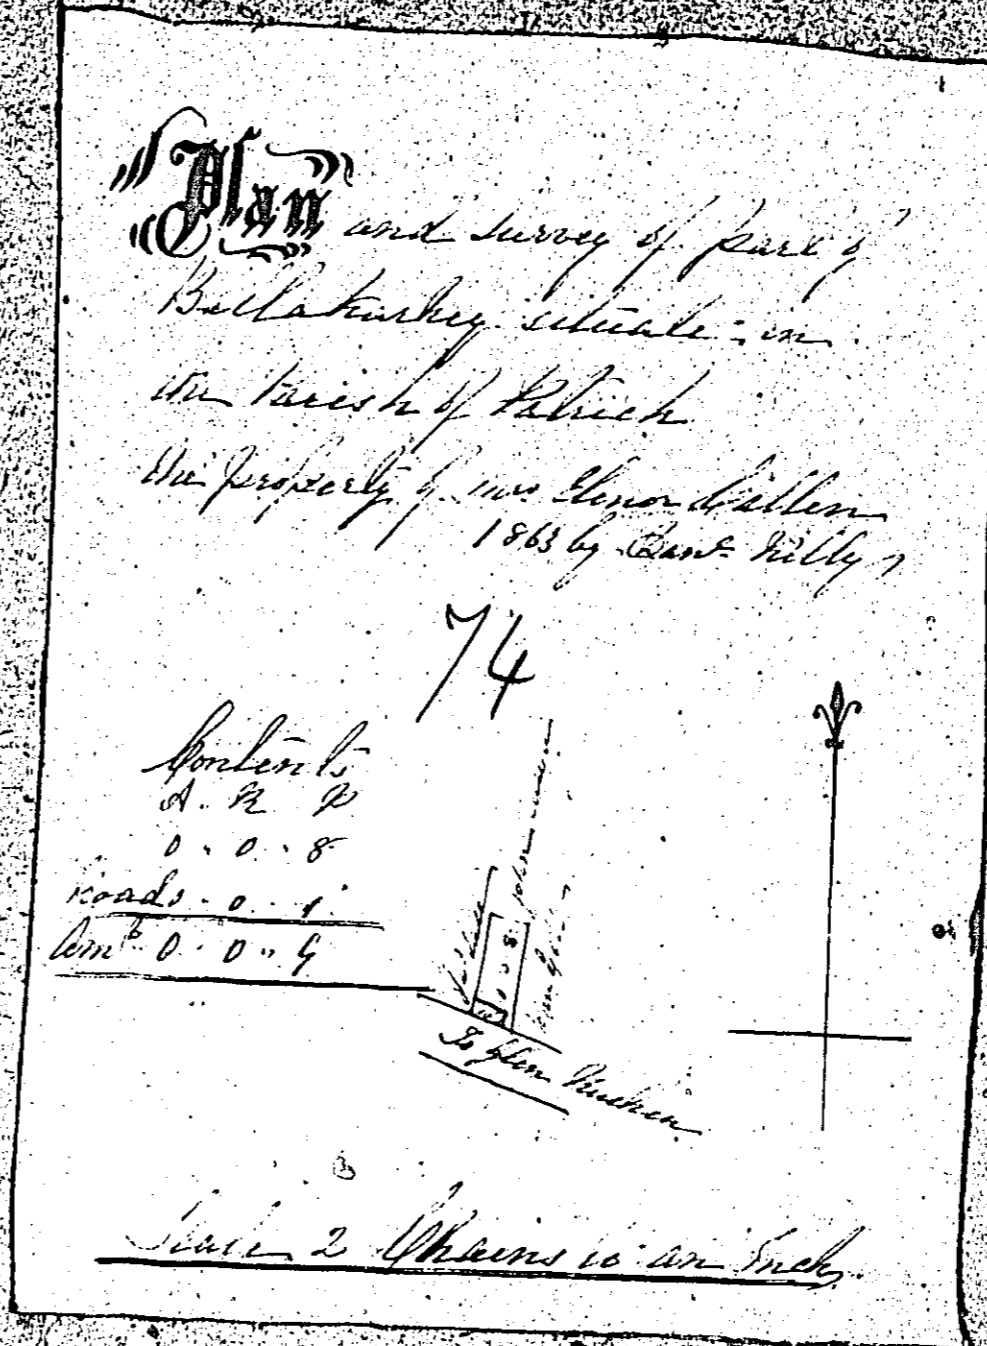 Plan and survey of part of
Ballakarkey situate in
the Parish of Patrick
the Property of mrs Elinor
1863 by Kelly
74
Contents
A. R P
0 . 0 . 8
Roads . 0 . 1
Amt 0 . 0 . 9
John
0 . 0 . 8
To Glen Rushen
Scale 2 Chains to an Inch